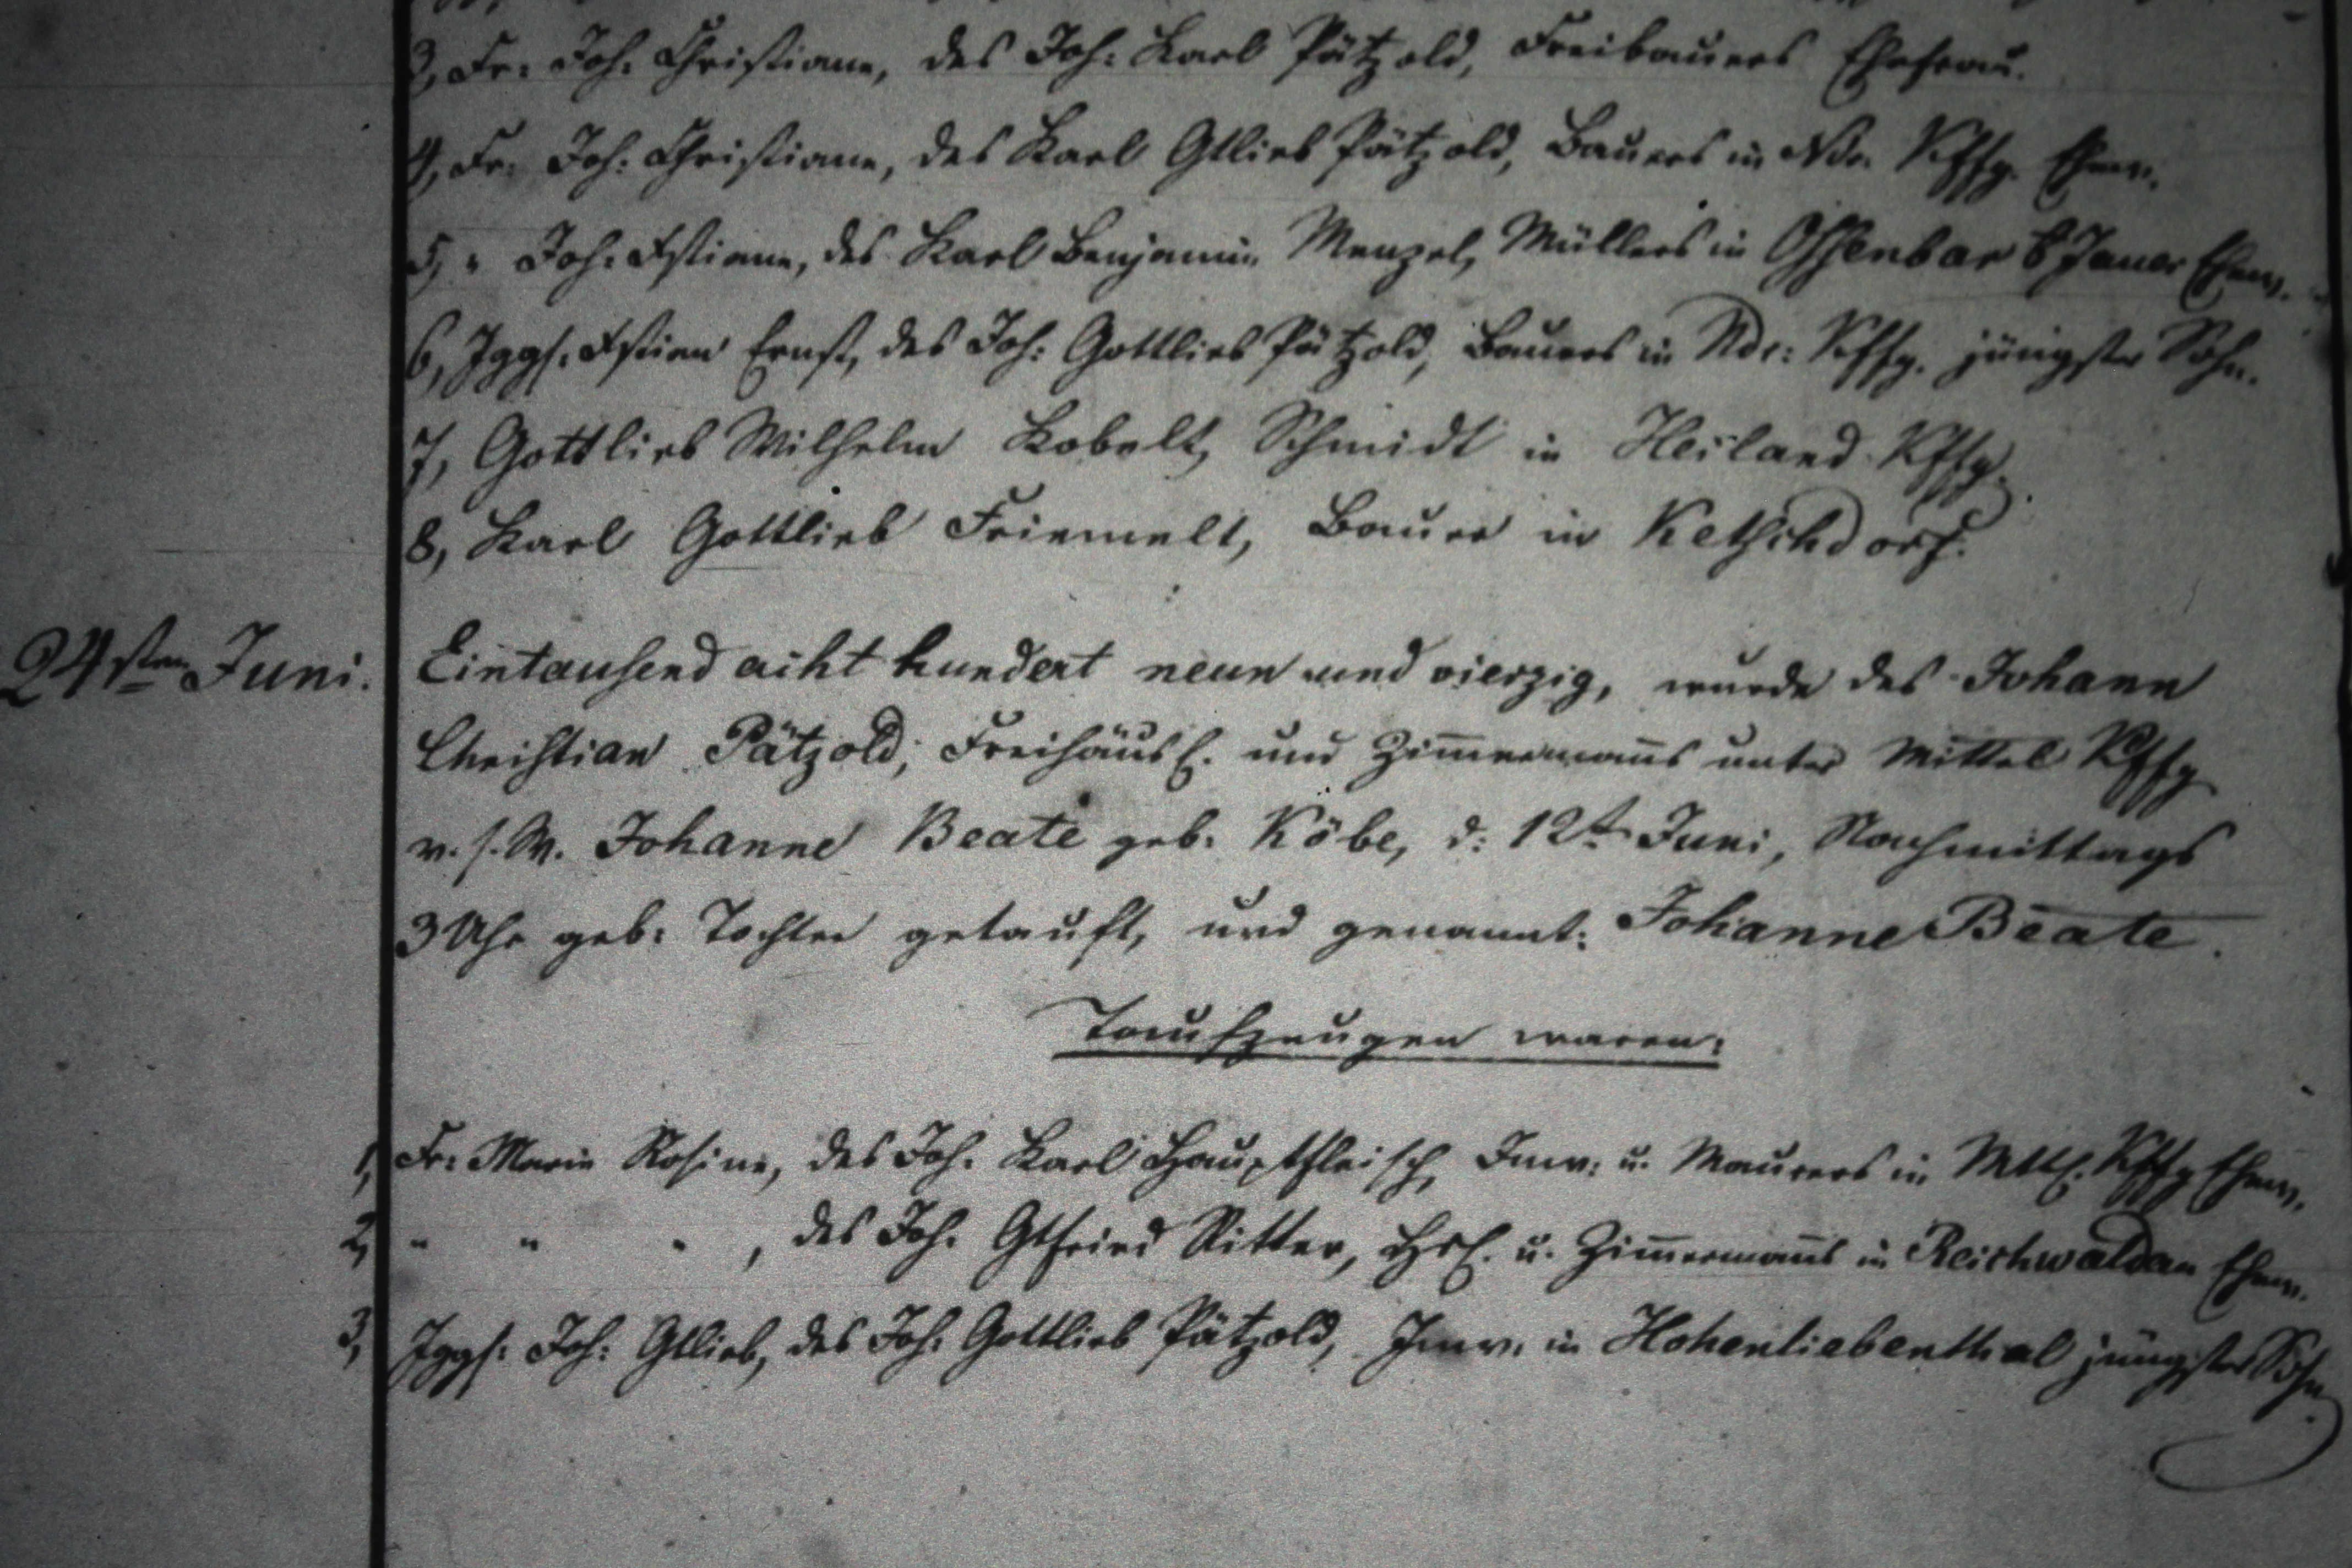 3, Fr: Joh: Christiane, des Joh: Karl Pätzold, Freibauers Ehefrau.
4, Fr: Joh: Christiane, des Karl Gtlieb Pätzold, Bauers in Ndr. Kffg. Ehew.
5, " Joh: Xstiane, des Karl Benjamin Menzel, Müllers in Offenbar b Jauer Ehew.
6, Jggs. Xstian Ernst, des Joh: Gottlieb Pätzold, Bauers in Ndr: Kffg. jüngster Sohn.
7, Gottlieb Wilhelm Kobelt, Schmidt in Heiland Kffg.
8, Karl Gottlieb Friemelt, Bauer in Ketschdorf.
24sten Juni. Eintausend acht hundert neun und vierzig, wurde des Johann
Christian Pätzold, Freihäusl. und Zim̄ermañs unter Mittel Kffg
v. s. W. Johanne Beate geb: Köbe, d: 12t Juni, Nachmittags
3 Uhr geb: Tochter getauft, und genannt: Johanne Beate.
Taufzeugen waren:
1, Fr: Marie Rosine, des Joh. Karl Hauptfleisch, Inw: u. Maurers in Mttl. Kffg Ehew.
2, " " " , des Joh. Gtfried Ritter, Hsl. u. Zim̄ermañs in Reichwaldau Ehew.
3, Jggs: Joh: Gtlieb, des Joh. Gottlieb Pätzold, Inw. in Hohenliebenthal jüngster Sohn